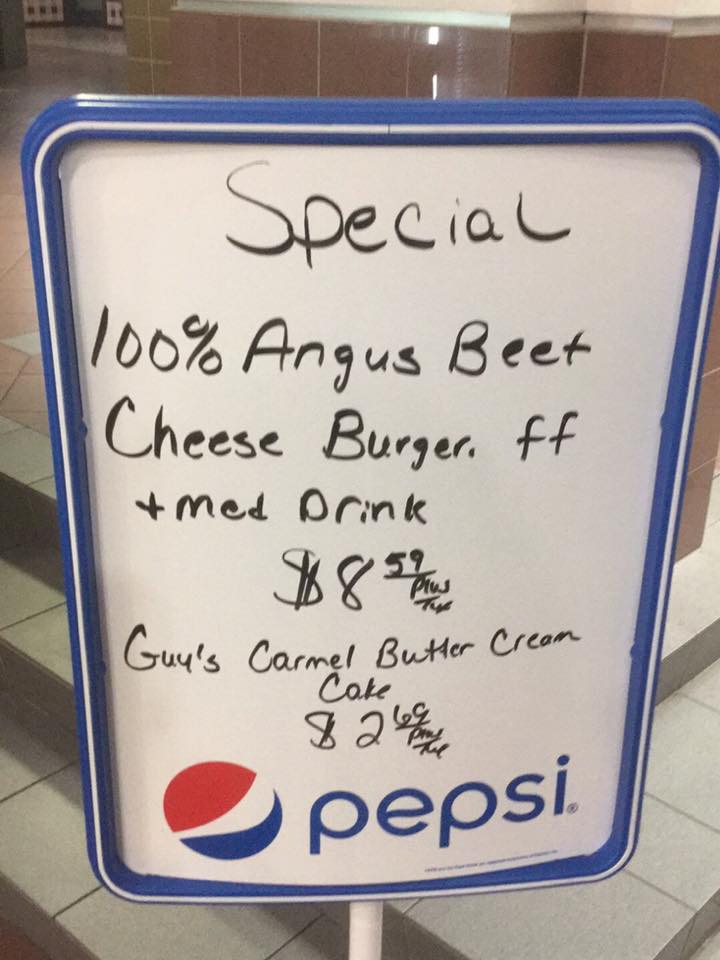 Special
100% Angus Beef
Cheese Burger. ff
+ med Drink
$8 59 Plus Tax
Guy's Carmel Butter Cream
Cake
$2 69 Plus Tax
pepsi